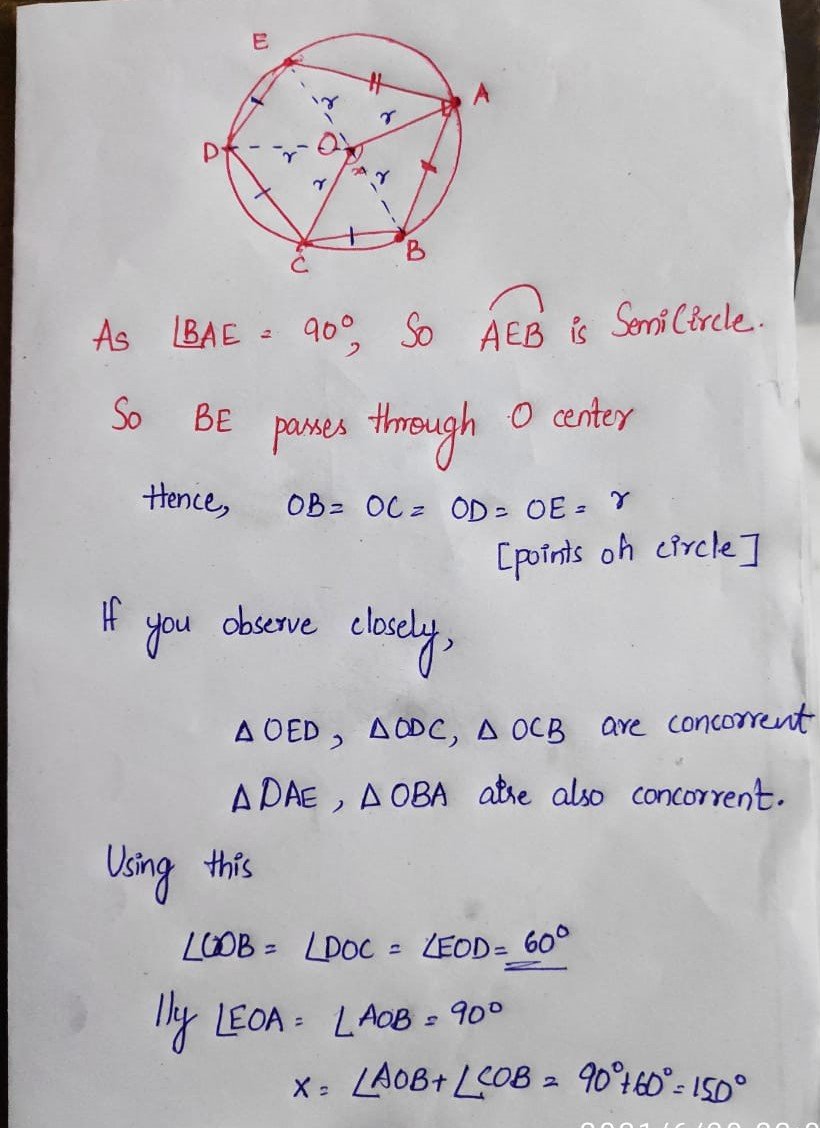 E
A
r
r
D
r
O
x
r
r
C
B
As ∠BAE = 90°, So AEB is SemiCircle.
So BE passes through O center
Hence, OB = OC = OD = OE = r
[points oh circle]
If you observe closely,
△ OED, △ODC, △ OCB are concorrent
△ DAE, △ OBA are also concorrent.
Using this
∠COB = ∠DOC = ∠EOD = 60°
||ly ∠EOA = ∠AOB = 90°
x = ∠AOB + ∠COB = 90°+60° = 150°